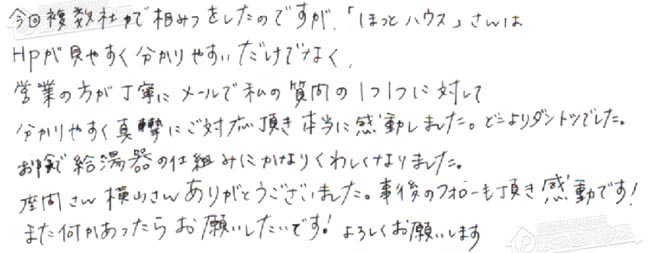 今回複数社で相みつをしたのですが、「ほっとハウス」さんは
HPが見やすく分かりやすいだけでなく、
営業の方が丁寧にメールで私の質問の1つ1つに対して
分かりやすく真摯にご対応頂き本当に感動しました。どこよりダントツでした。
お陰で給湯器の仕組みにかなりくわしくなりました。
座間さん横山さんありがとうございました。事後のフォローも頂き感動です!
また何かあったらお願いしたいです!よろしくお願いします